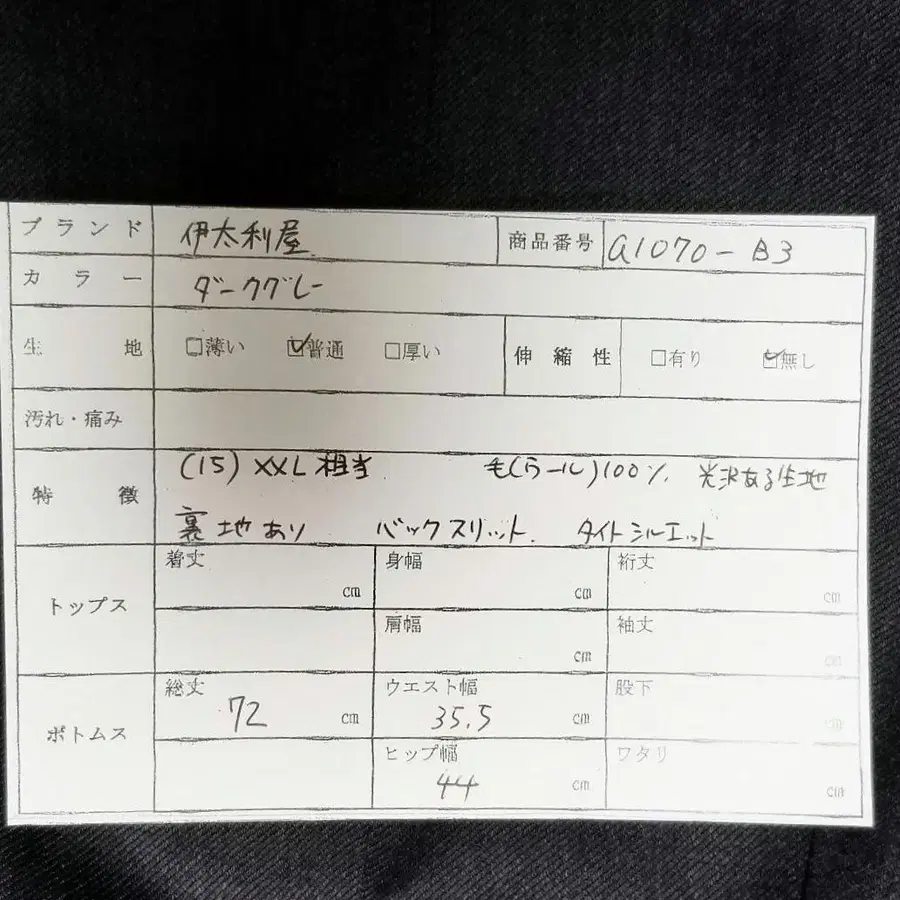 ブランド 伊太利屋 商品番号 a1070-B3
カラー ダークグレー
生地 □薄い ☑普通 □厚い 伸縮性 □有り ☑無し
汚れ・痛み
特徴 (15) XXL相当 毛(ウール)100% 光沢ある生地
裏地あり バックスリット. タイトシルエット
トップス 着丈 cm 身幅 cm 裄丈 cm
肩幅 cm 袖丈 cm
ボトムス 総丈 72 cm ウエスト幅 35.5 cm 股下 cm
ヒップ幅 44 cm ワタリ cm